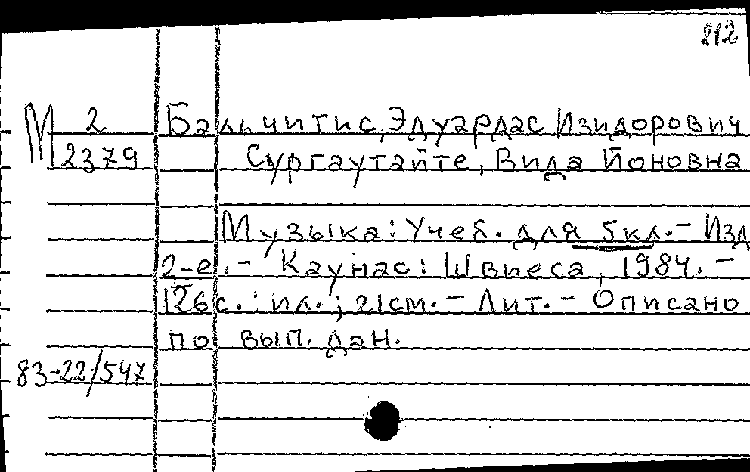 212
М 2 Бальчитис, Эдуардас Изидорович
2379 Сургаутайте, Вида Йоновна
Музыка: Учеб. для 5кл. - Изд
2-е. - Каунас: Швиеса, 1984. -
126с.: ил.; 21см. - Лит. - Описано
по вып. дан.
83-22/547